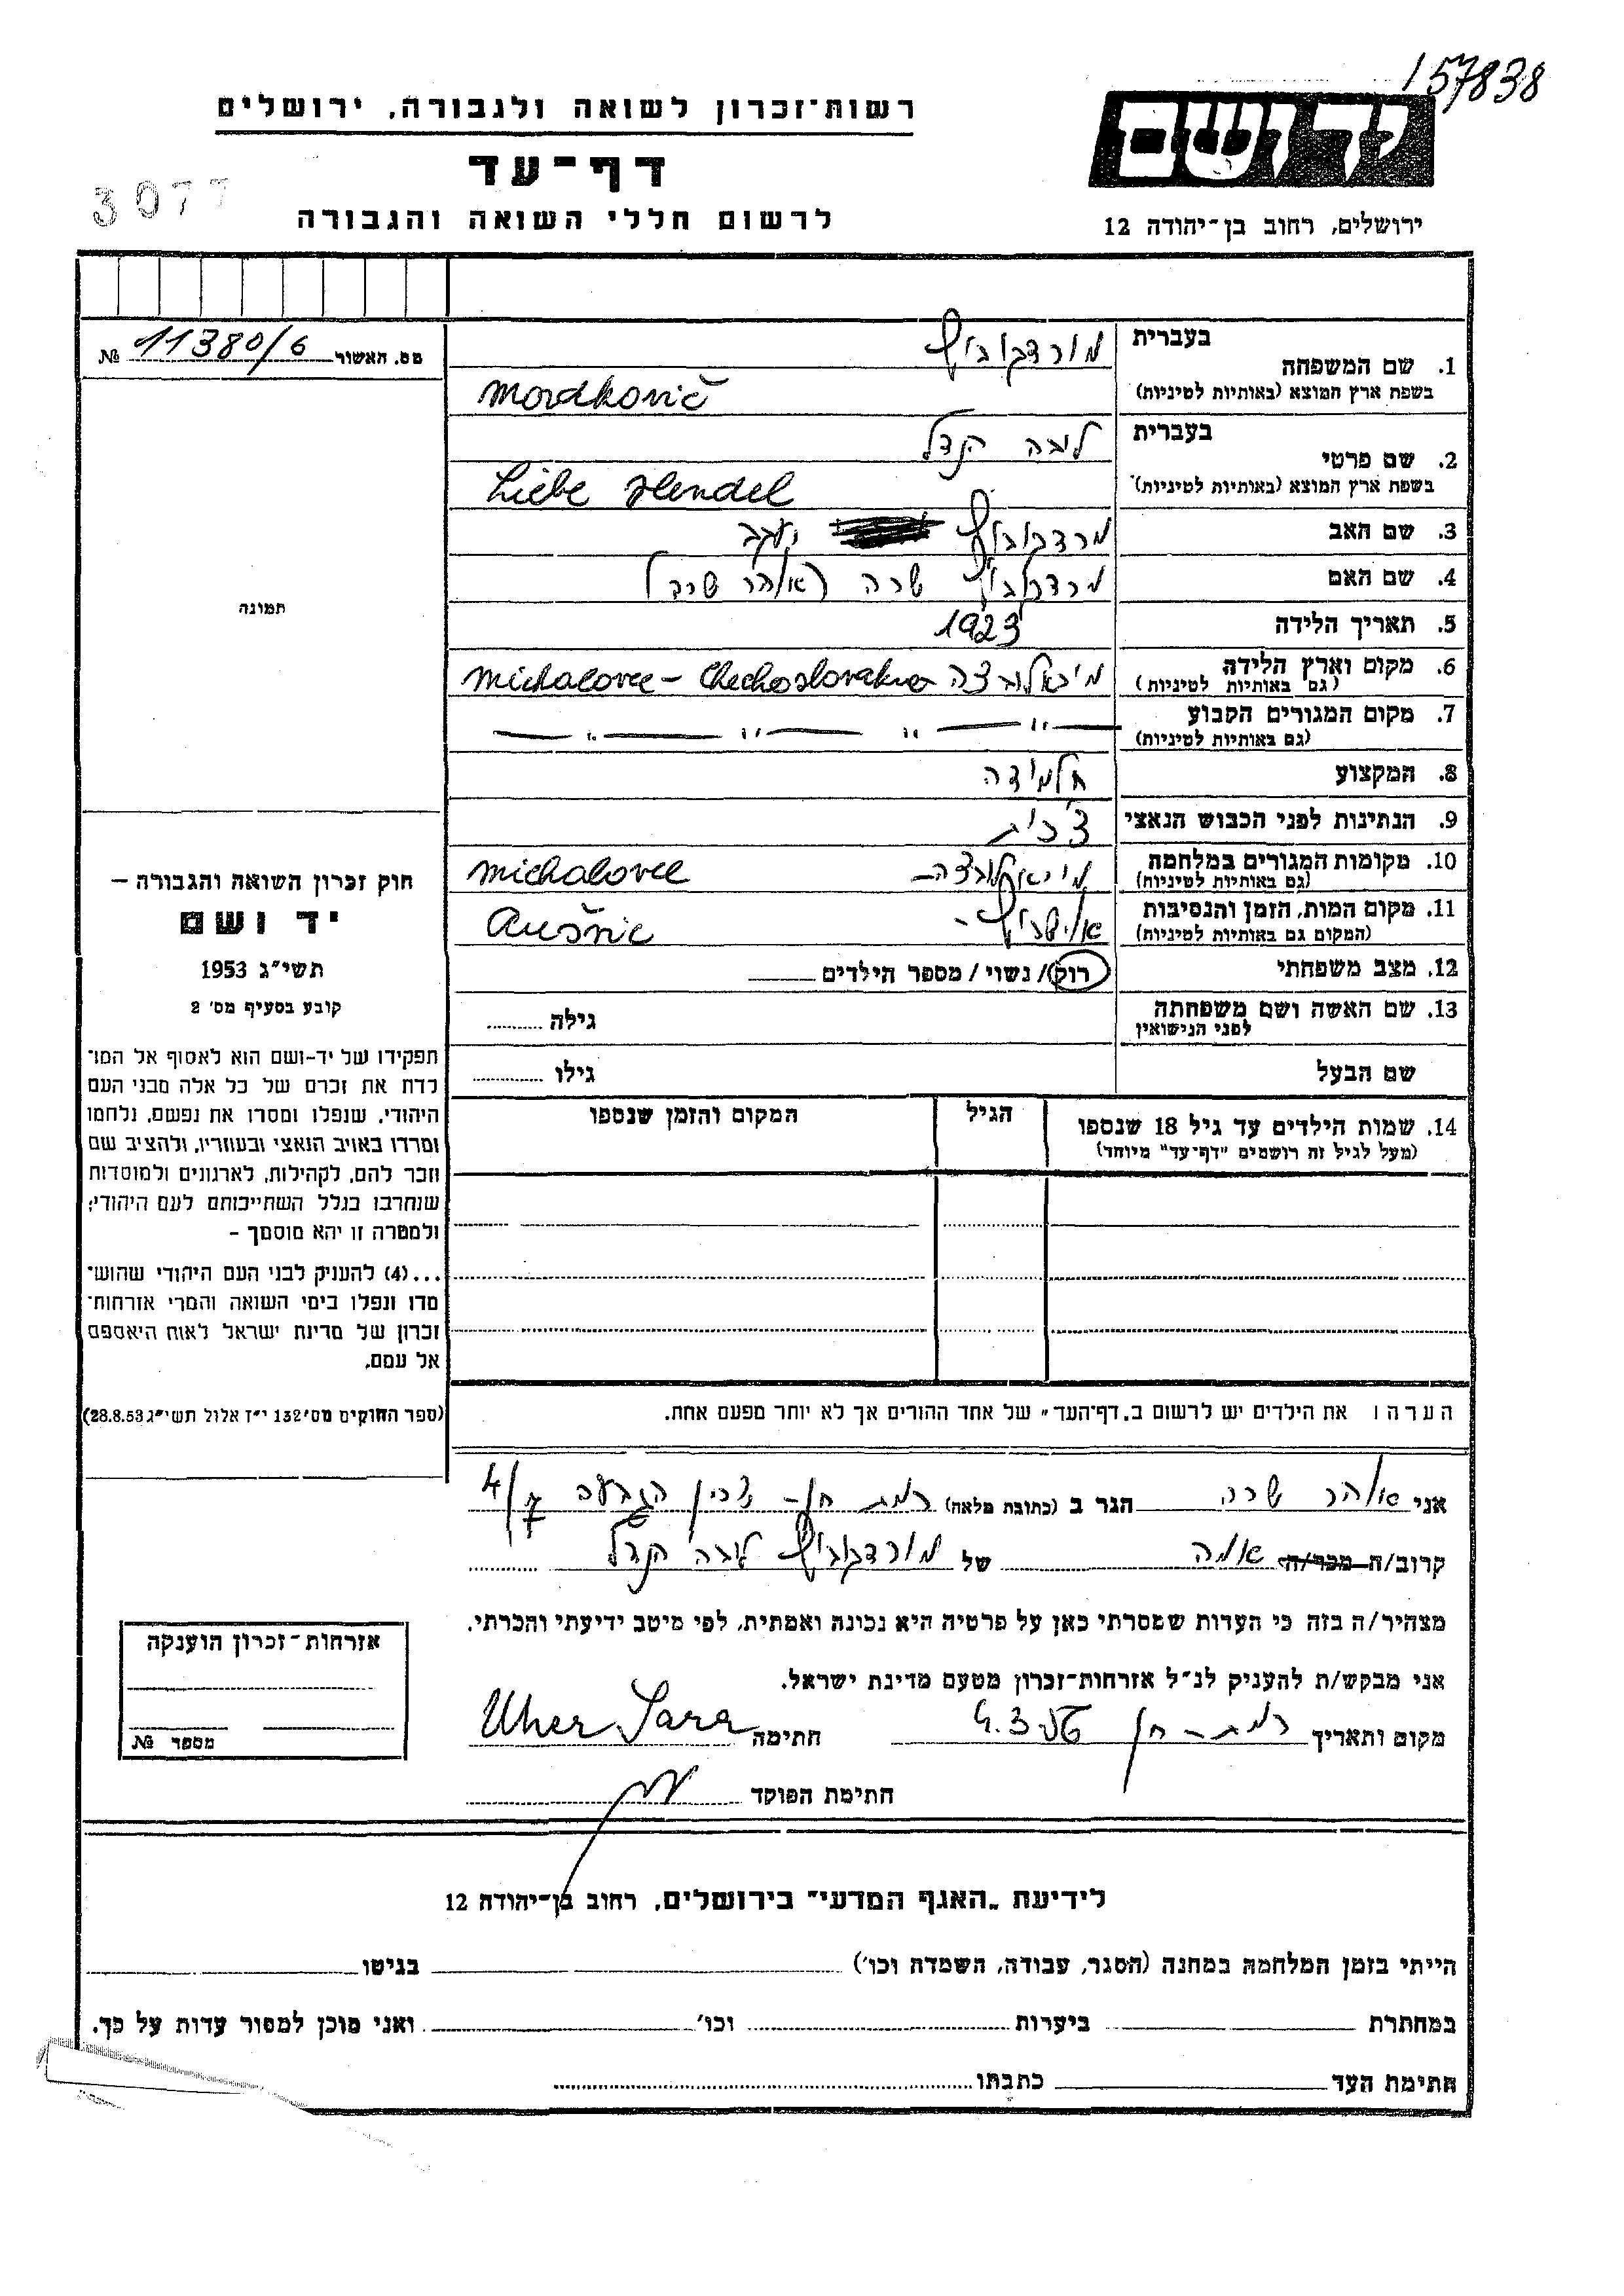 157838
יד ושם
רשות־זכרון לשואה ולגבורה, ירושלים
דף־עד
3077
לרשום חללי השואה והגבורה
ירושלים, רחוב בן־יהודה 12
מס. האשור 11380/6 №
תמונה
חוק זכרון השואה והגבורה –
יד ושם
תשי״ג 1953
קובע בסעיף מס׳ 2
תפקידו של יד-ושם הוא לאסוף אל המו־
לדת את זכרם של כל אלה מבני העם
היהודי, שנפלו ומסרו את נפשם, נלחמו
ומרדו באויב הנאצי ובעוזריו, ולהציב שם
וזכר להם, לקהילות, לארגונים ולמוסדות
שנחרבו בגלל השתייכותם לעם היהודי;
ולמטרה זו יהא מוסמך –
...(4) להעניק לבני העם היהודי שהוש־
מדו ונפלו בימי השואה והמרי אזרחות־
זכרון של מדינת ישראל לאות היאספם
אל עמם.
(ספר החוקים מס׳ 132 י״ז אלול תשי״ג 28.8.53)
בעברית מורדקוביץ
1. שם המשפחה
בשפת ארץ המוצא (באותיות לטיניות) Mordkovič
בעברית ליבה הנדל
2. שם פרטי
בשפת ארץ המוצא (באותיות לטיניות) Liebe Hendel
3. שם האב מרדקוביץ יעקב
4. שם האם מרדקוביץ שרה (אוהר שרה)
5. תאריך הלידה 1923
6. מקום וארץ הלידה מיכאלובצה Michalovce – Chechoslovakia
(גם באותיות לטיניות)
7. מקום המגורים הקבוע — " — " — " — " —
(גם באותיות לטיניות)
8. המקצוע תלמידה
9. הנתינות לפני הכבוש הנאצי צ׳כית
10. מקומות המגורים במלחמה מיכאלובצה – Michalovce
(גם באותיות לטיניות)
11. מקום המות, הזמן והנסיבות אושויץ – Aušvic
(המקום גם באותיות לטיניות)
12. מצב משפחתי רוק/ נשוי / מספר הילדים
13. שם האשה ושם משפחתה גילה
לפני הנישואין
שם הבעל גילו
14. שמות הילדים עד גיל 18 שנספו הגיל המקום והזמן שנספו
(מעל לגיל זה רושמים "דף־עד" מיוחד)
הערה: את הילדים יש לרשום ב„דף־העד״ של אחד ההורים אך לא יותר מפעם אחת.
אני אוהר שרה הגר ב (כתובת מלאה) רמת חן – 4/7
קרוב/ה מכר/ה אמה של מורדקוביץ ליבה הנדל
מצהיר/ה בזה כי העדות שמסרתי כאן על פרטיה היא נכונה ואמתית, לפי מיטב ידיעתי והכרתי.
אני מבקש/ת להעניק לנ״ל אזרחות־זכרון מטעם מדינת ישראל.
מקום ותאריך רמת – חן 9.3. חתימה Uher Sara
חתימת הפוקד
אזרחות־זכרון הוענקה
מספר №
לידיעת „האגף המדעי״ בירושלים, רחוב בן־יהודה 12
הייתי בזמן המלחמה במחנה (הסגר, עבודה, השמדה וכו׳) בגיטו
במחתרת ביערות וכו׳ ואני מוכן למסור עדות על כך.
חתימת העד כתבתו